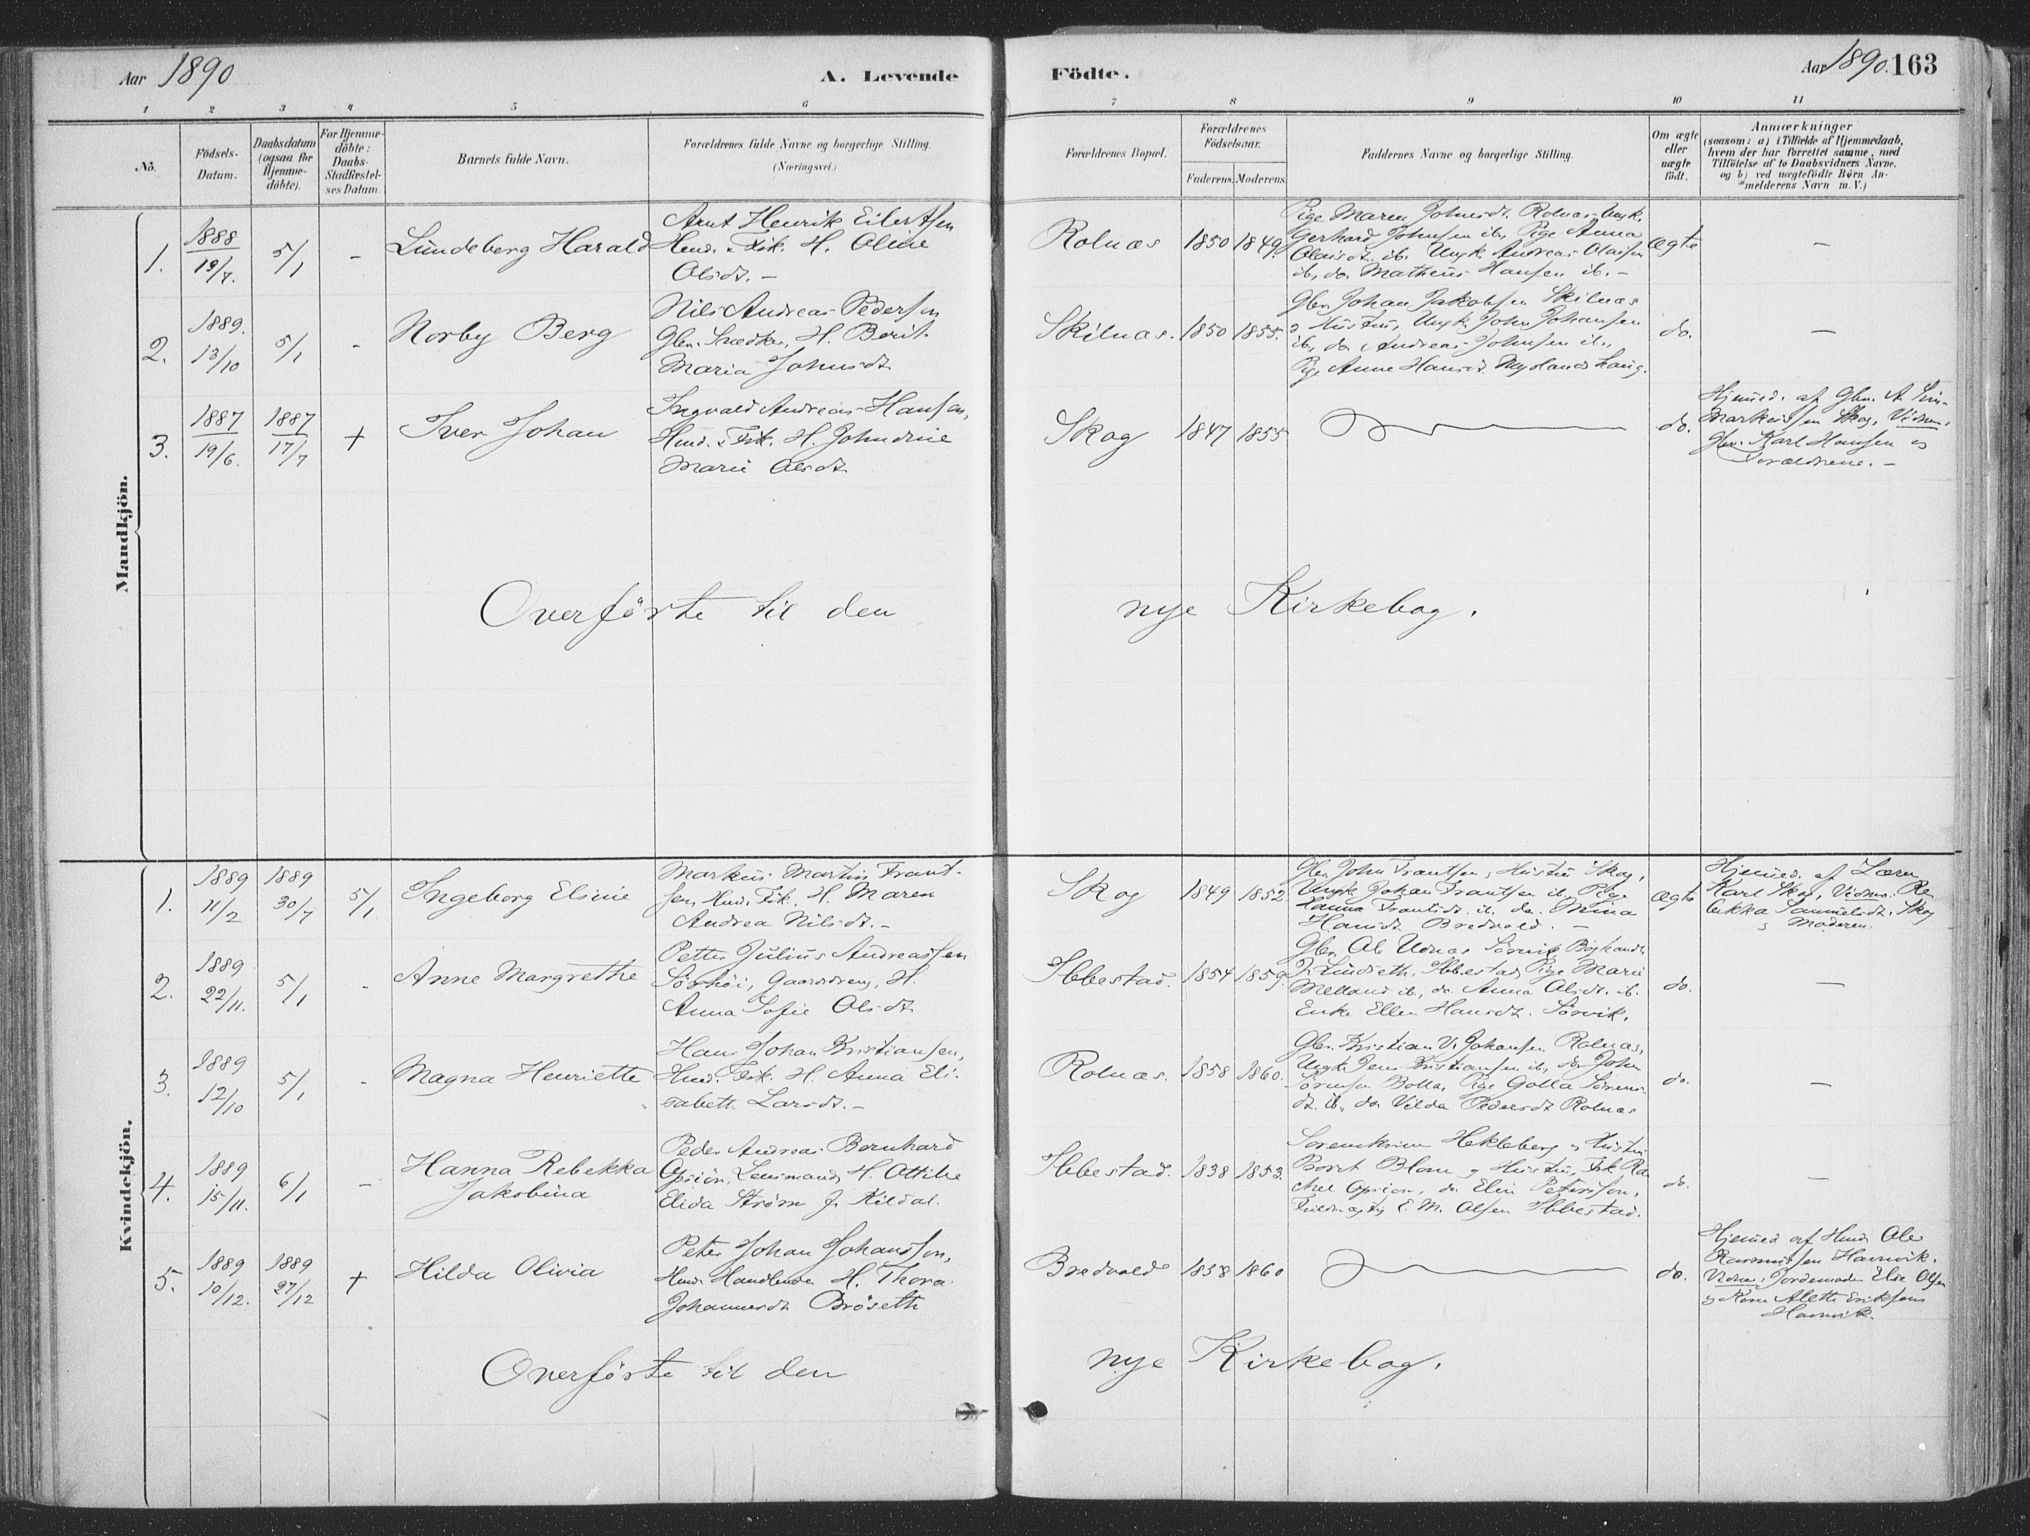 Aar 1890
A. Levende
Födte.
Aar 1890. 163
1 2 3 4 5 6 7 8 9 10 11
No.
Födsels-
Datum.
Daabsdatum
(ogsaa for
Hjemme-
döbte).
For Hjemme-
döbte:
Daabs-
Stadfæstel-
ses Datum.
Barnets fulde Navn.
Forældrenes fulde Navne og borgerlige Stilling.
(Næringsvei.)
Forældrenes Bopæl.
Forældrenes
Födselsaar.
Faderens. Moderens.
Faddernes Navne og borgerlige Stilling.
Om ægte
eller
uægte
födt.
Anmærkninger
(saasom: a) i Tilfælde af Hjemmedaab,
hvem der har forrettet samme, med
Tilföielse af to Daabsvidners Navne.
og b) ved uægtefödte Börn An-
melderens Navn m. V.)
Mandkjön.
1.
1888
19/7.
5/1
-
Lundeberg Harald
Arnt Henrik Eilertsen
Hmd. Fisk. H. Oline
Olsdt. -
Rolnæs
1850 1849.
Pige Maren Johnsdt. Rolnæs, Ungk.
Gerhard Johnsen ib., Pige Anna
Olaisdt. ib. Ungk. Andreas Olaisen
ib, do Matheus Hansen ib. -
ægte
-
2.
1889.
13/10
5/1
-
Norby Berg
Nils Andreas Pedersen
Gbr. Snedker, H. Berit
Maria Johnsdt
Skilnæs.
1850 1855.
Gbr. Johan Jakobsen Skilnæs
o Hustru, Ungk. John Johansen
ib, do Andreas Johnsen ib.,
Pige Anne Hansdt.
do.
-
3.
1887
19/6.
1887
17/7
+
Iver Johan
Ingvald Andreas Hansen,
Hmd. Fisk. H. Johndine
Marie Olsdt
Skog
1847 1855
do.
Hjemmed. af Gbr. A.
Markussen Skog, Vidner:
Gbr. Karl Hansen og
Forældrene. -
Overförte til den nye Kirkebog.
Kvindekjön.
1.
1889
11/2
1889
30/7
5/1
Ingeborg Elsine
Markus Martin Frant-
sen, Hmd. Fisk. H. Maren
Andrea Nilsdt. -
Skog
1849 1852
Gbr. John Frantsen, Hustru Skog,
Ungk Johan Frantsen ib, Pige
Hanna Frantsdt. ib. do. Mina
Hansdt Bredvold. -
ægte
Hjemmed. af Lærer
Karl Skog, Vidner: Re-
bekka Samuelsdt. Skog
o Moderen.
2.
1889
22/11.
5/1
-
Anne Margrethe
Petter Julius Andreassen
Sörhöi, Gaardsdreng, H.
Anna Sofie Olsdt
Ibbestad.
1854 1859.
Gbr. Ole Udnæs Sörvik
Lindseth, Ibbestad, Pige Marie
Melland ib, do Anna Olsdt. ib.
Enke Ellen Hansdt. Sörvik.
do.
-
3.
1889
12/10
5/1
-
Magna Henriette
Hans Johan Kristiansen,
Hmd. Fisk. H. Anna Eli-
sabeth Larsdt. -
Rolnæs.
1858 1860.
Gbr. Kristian V. Johansen Rolnæs,
Ungk Jens Kristiansen ib, do John
Sörensen Bolla, Pige Golla Sörens-
dt. ib., do Vilda Pedersdt Rolnæs
do.
-
4.
1889
15/11.
6/1
-
Hanna Rebekka
Jakobina
Peder Andreas Bernhard
Oprion, Lensmand, H. Ottilie
Elida Ström f. Kildal.
Ibbestad.
1838 1853.
Sorenskriver Hekleberg o Hustru
Berit Blom og Hustru, Frk. Ra-
chel Oprion, do. Elen Peterson,
E. M. Olsen Ibbestad.
do.
-
5.
1889
10/12.
1889
27/12
+
Hilda Olivia
Peter Johan Johansson,
Hmd. Handlende H. Thora
Johannesdt Bröseth
Bredvold
1838 1860
do.
Hjemmed af Hmd Ole
Rasmussen Hamnvik.
Vidner: Jordemoder Elise Olsen
o Kone Aleth Eriksens
Hamnvik.
Overförte til den nye Kirkebog.